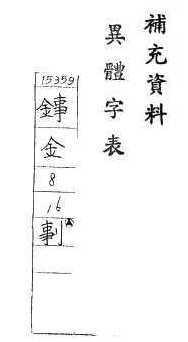 補充資料
異體字表
15359
金
8
16
剚